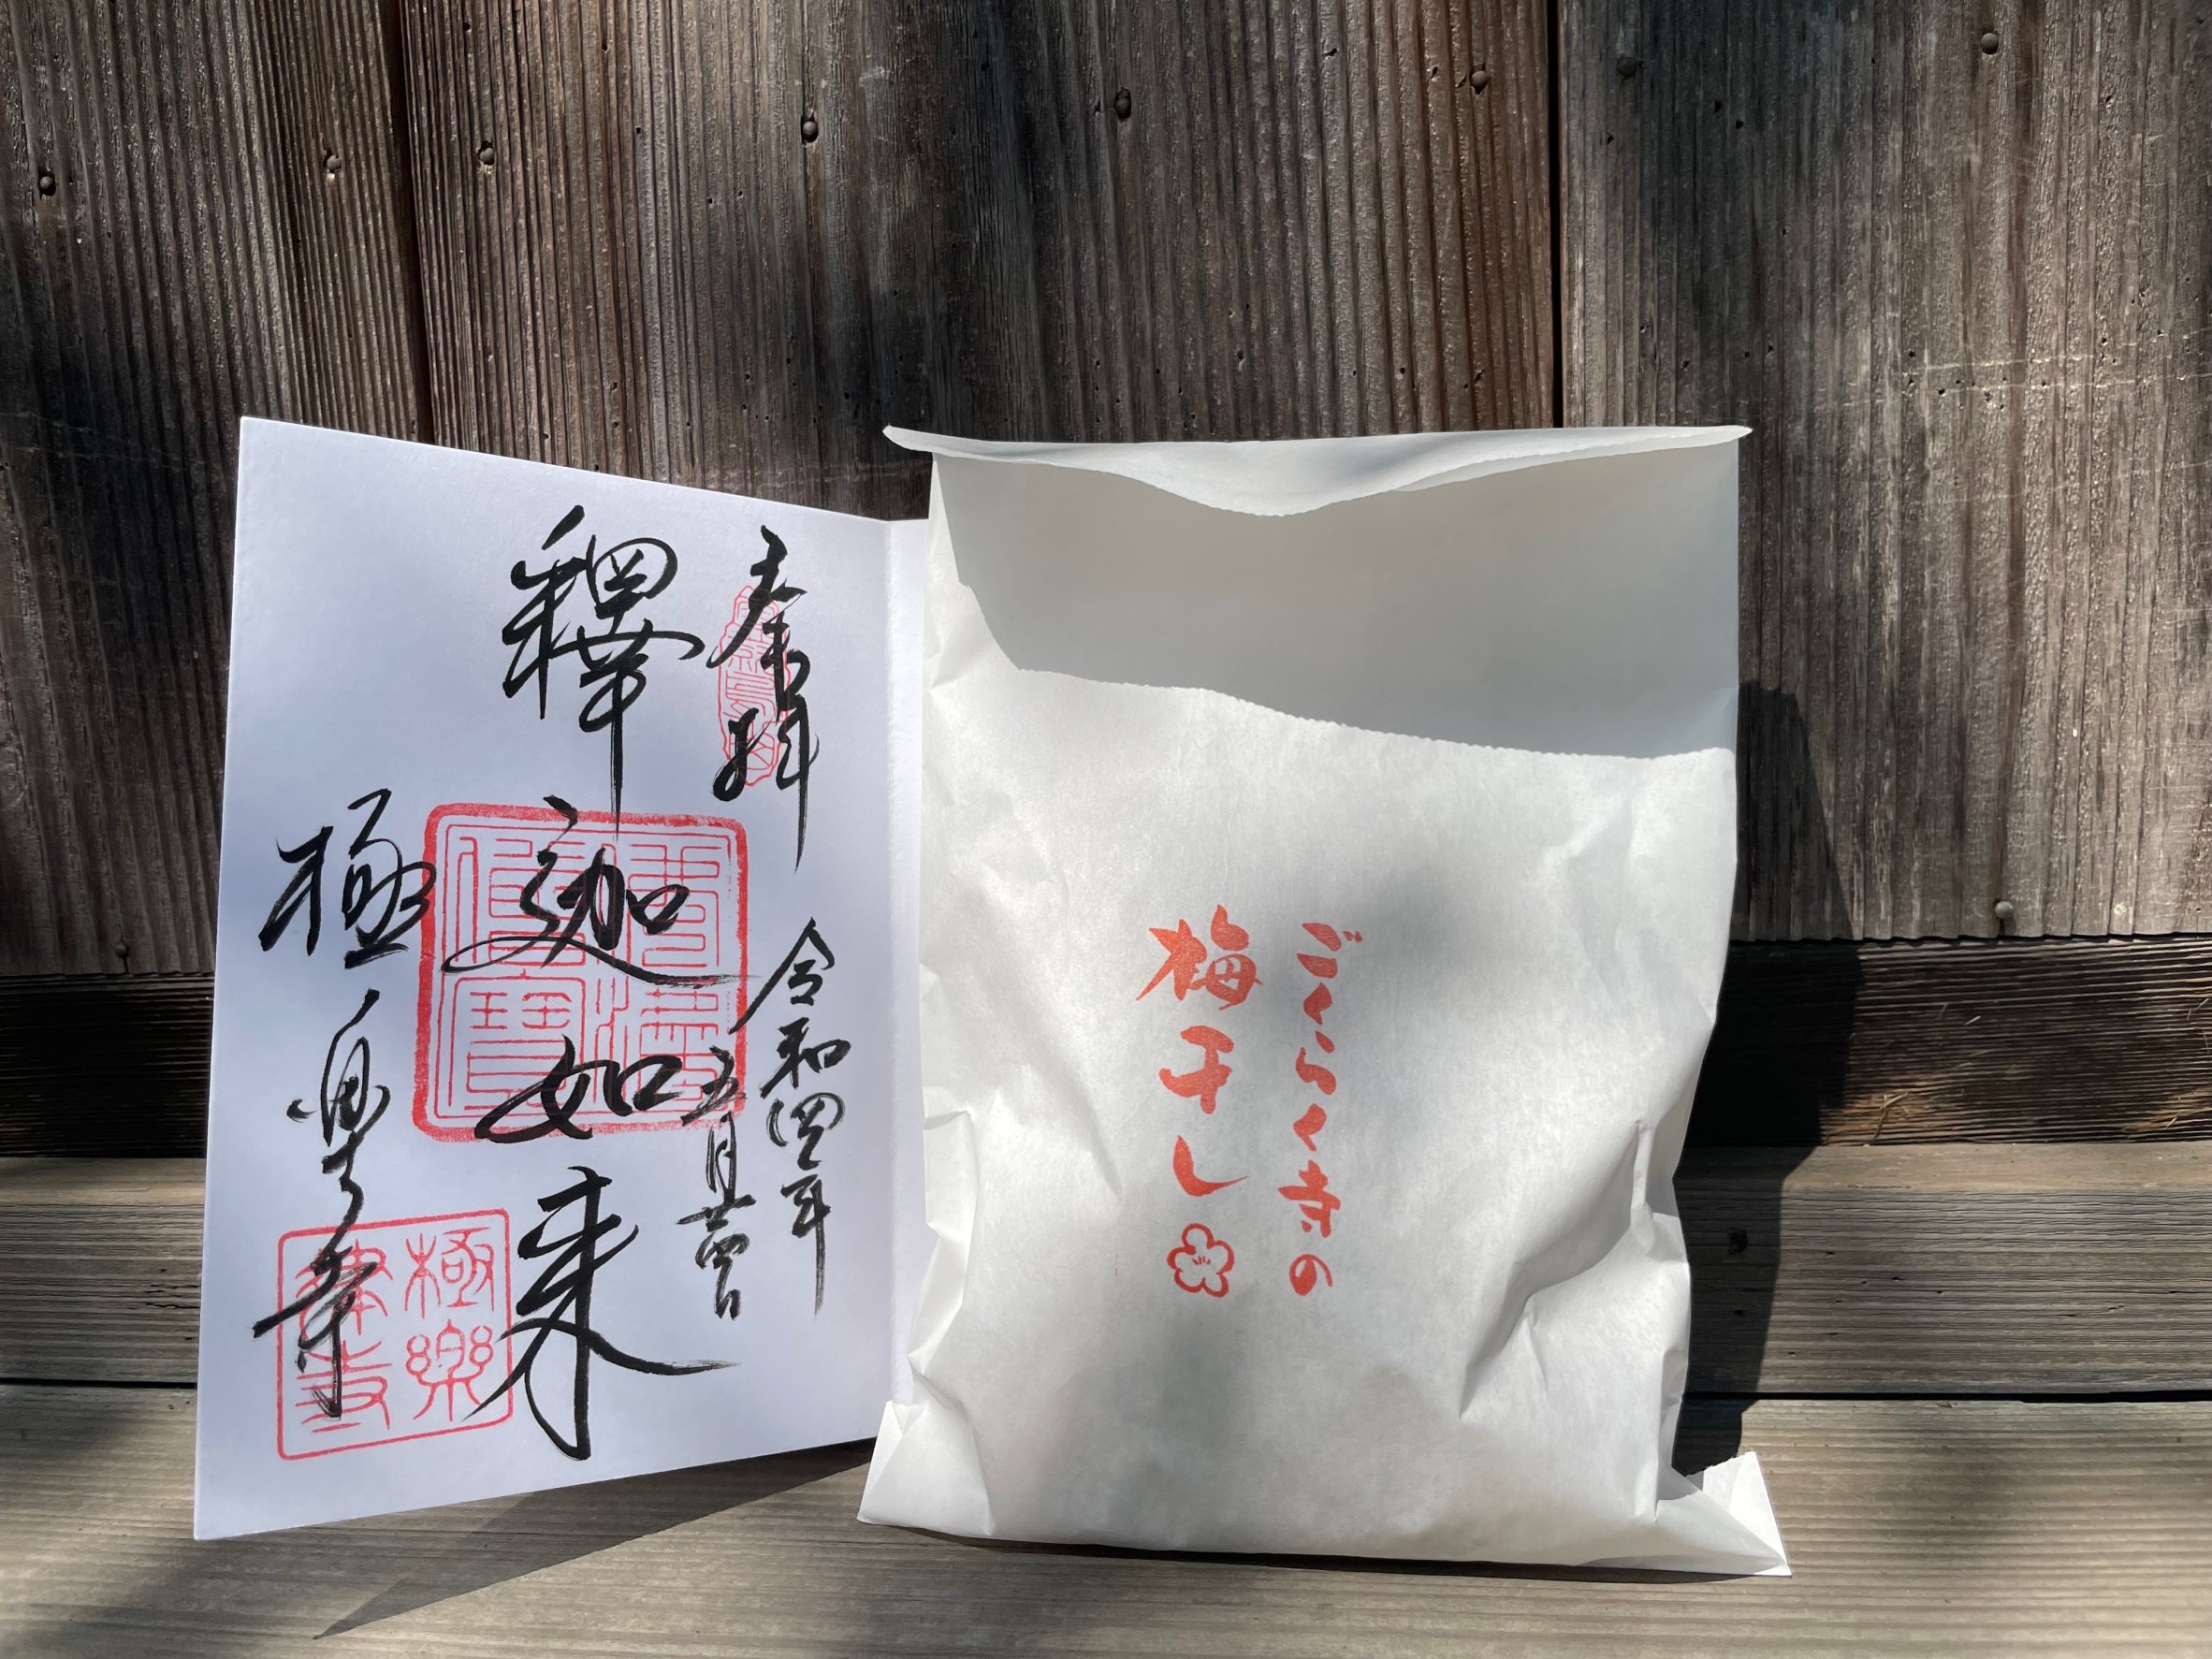 奉拝
令和四年
五月廿四日
釋迦如来
極楽寺
極樂
律寺
ごくらく寺の
梅干し